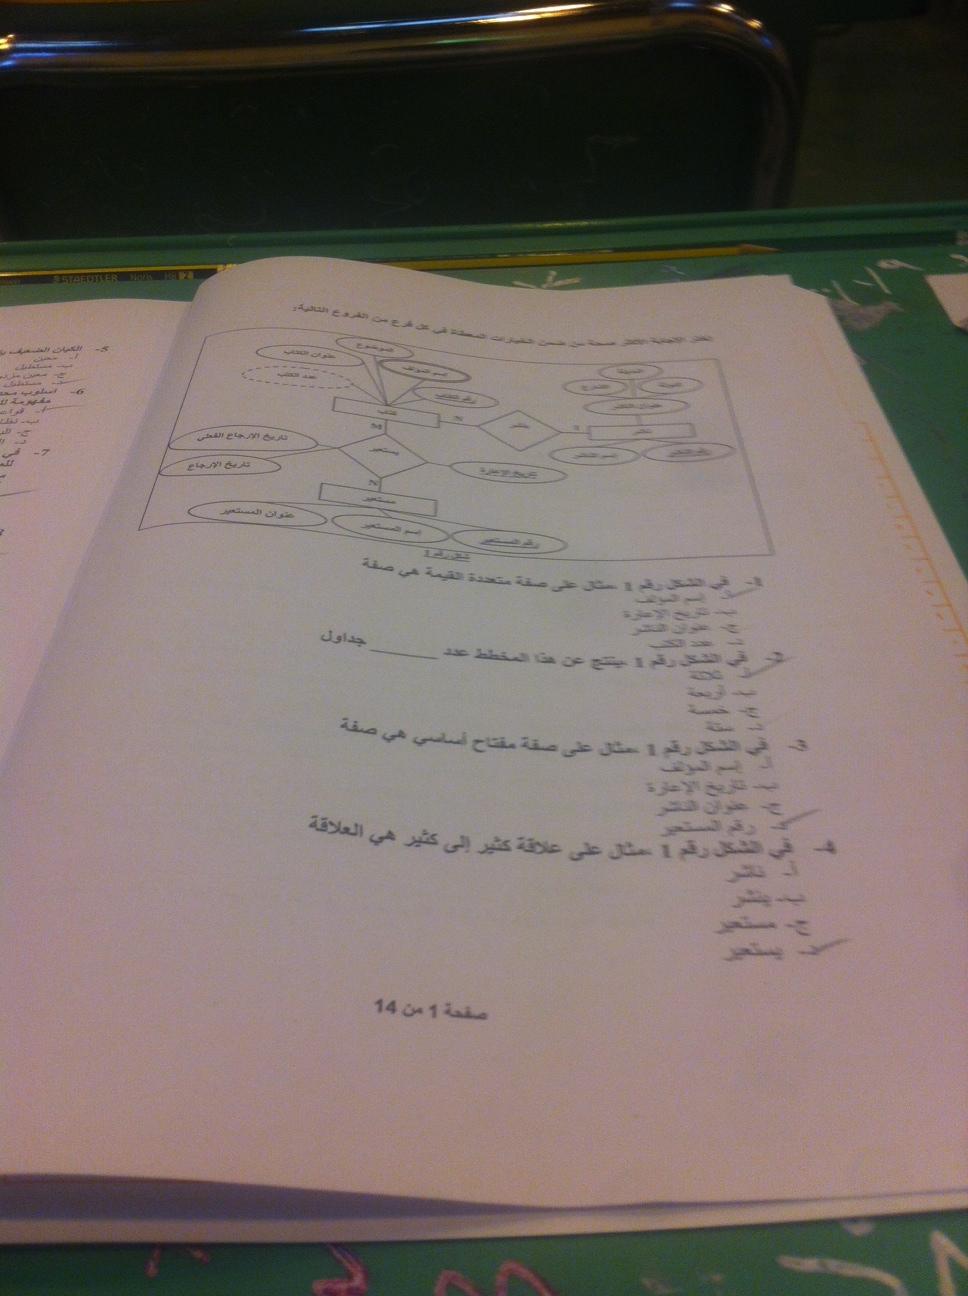 STAEDTLER Noris HB 2
اختر الاجابة الاكثر صحة من ضمن الخيارات المعطاة في كل فرع من الفروع التالية:
الموضوع
عنوان الكتاب
إسم المؤلف
عدد الكتب
رقم الكتاب
كتاب
N
ينشر
1
ناشر
المدينة
الشارع
عنوان الناشر
إسم الناشر
رقم الناشر
M
يستعير
N
تاريخ الارجاع الفعلي
تاريخ الإرجاع
تاريخ الإعارة
مستعير
عنوان المستعير
إسم المستعير
رقم المستعير
شكل رقم 1
1- في الشكل رقم 1 ،مثال على صفة متعددة القيمة هي صفة
أ- إسم المؤلف
ب- تاريخ الإعارة
ج- عنوان الناشر
د- عدد الكتب
2- في الشكل رقم 1 ،ينتج عن هذا المخطط عدد ______ جداول
أ- ثلاثة
ب- أربعة
ج- خمسة
د- ستة
3- في الشكل رقم 1 ،مثال على صفة مفتاح أساسي هي صفة
أ- إسم المؤلف
ب- تاريخ الإعارة
ج- عنوان الناشر
د- رقم المستعير
4- في الشكل رقم 1 ،مثال على علاقة كثير إلى كثير هي العلاقة
أ- ناشر
ب- ينشر
ج- مستعير
د- يستعير
صفحة 1 من 14
5- الكيان الضعيف
أ- معين
ب- مستطيل
ج- معين مزدوج
د- مستطيل
6- اسلوب
مفهومة
أ- قواعد
7- في